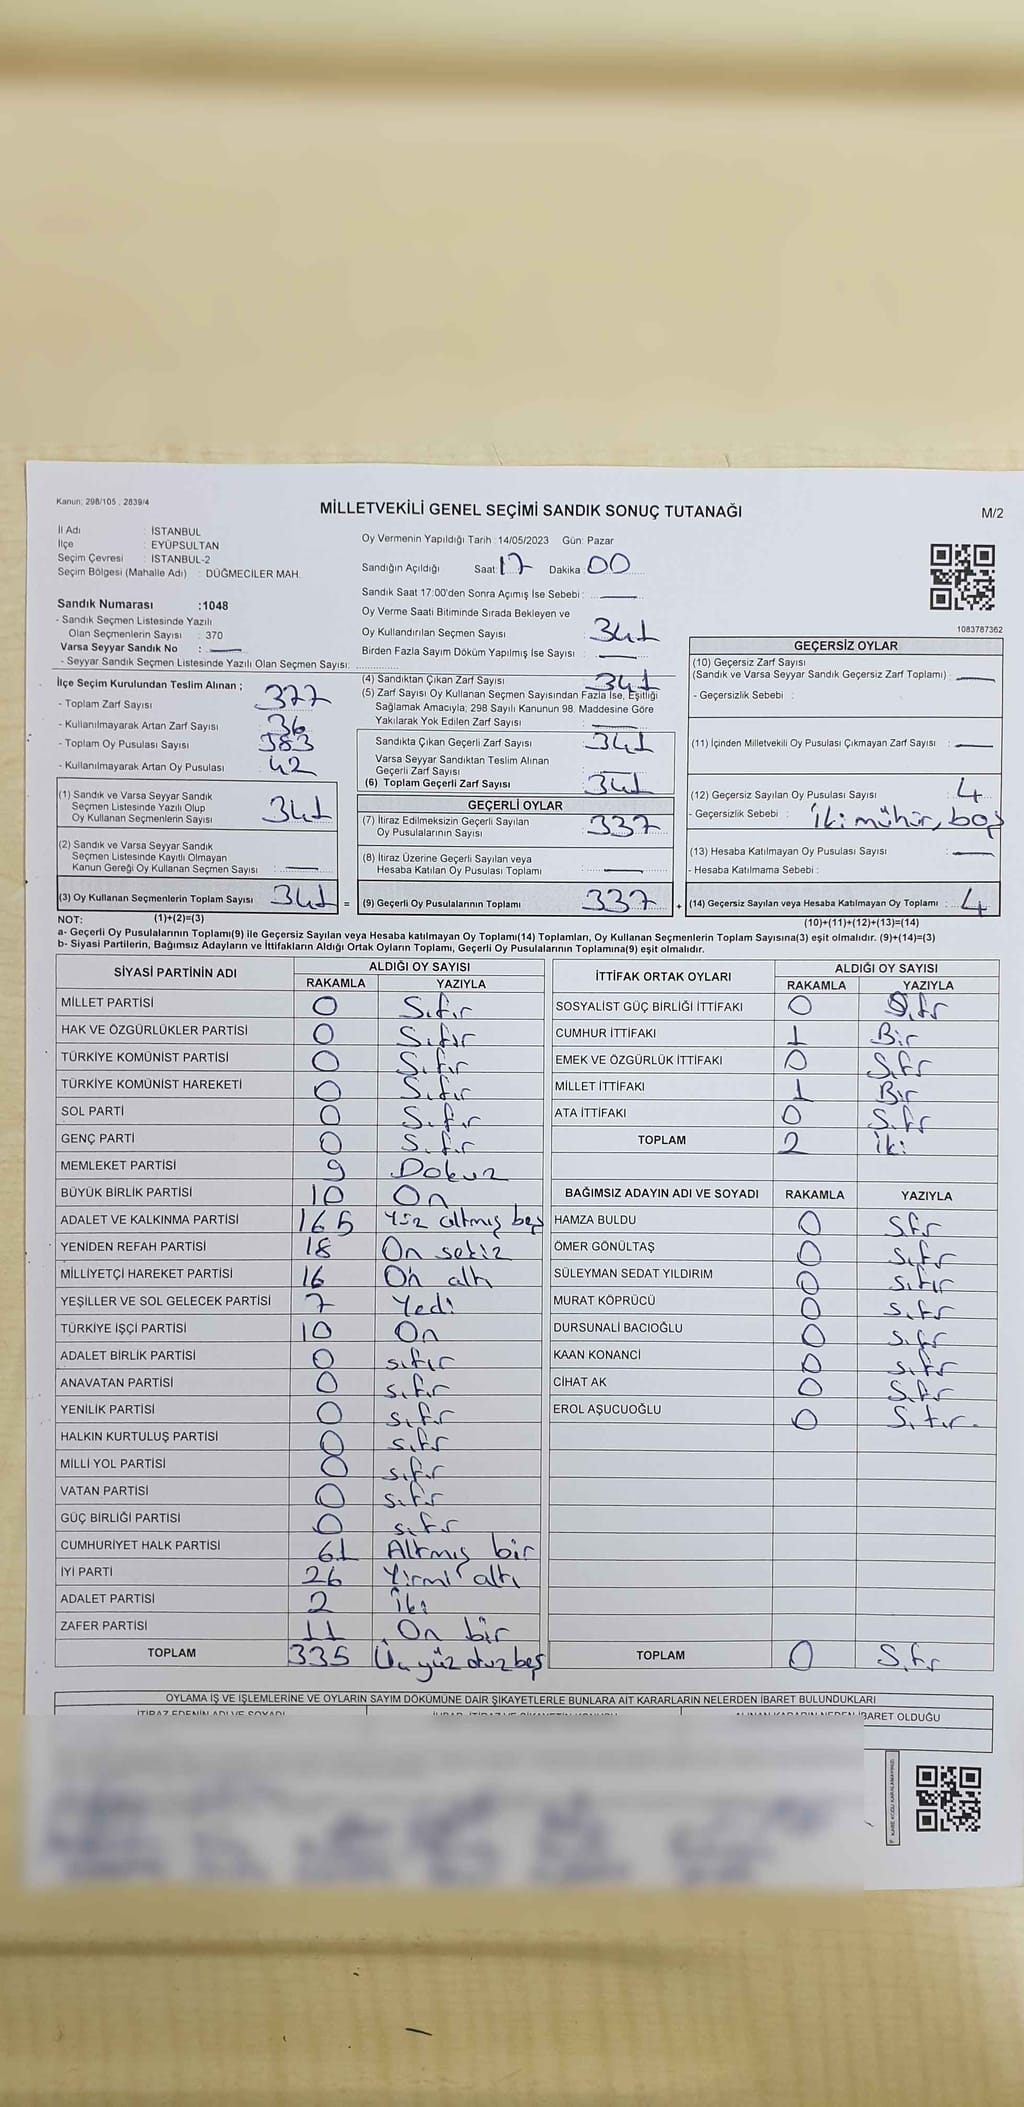 Kanun; 298/105 , 2839/4
MİLLETVEKİLİ GENEL SEÇİMİ SANDIK SONUÇ TUTANAĞI
M/2
İl Adı : İSTANBUL
İlçe : EYÜPSULTAN
Seçim Çevresi : İSTANBUL-2
Seçim Bölgesi (Mahalle Adı) : DÜĞMECİLER MAH.
Sandık Numarası :1048
- Sandık Seçmen Listesinde Yazılı
Olan Seçmenlerin Sayısı : 370
Varsa Seyyar Sandık No : —
- Seyyar Sandık Seçmen Listesinde Yazılı Olan Seçmen Sayısı:
Oy Vermenin Yapıldığı Tarih : 14/05/2023 Gün: Pazar
Sandığın Açıldığı Saat: 17 Dakika: 00
Sandık Saat 17:00'den Sonra Açımış İse Sebebi : —
Oy Verme Saati Bitiminde Sırada Bekleyen ve
Oy Kullandırılan Seçmen Sayısı : 341
Birden Fazla Sayım Döküm Yapılmış İse Sayısı : —
1083787362
İlçe Seçim Kurulundan Teslim Alınan ;
- Toplam Zarf Sayısı : 377
- Kullanılmayarak Artan Zarf Sayısı : 36
- Toplam Oy Pusulası Sayısı : 383
- Kullanılmayarak Artan Oy Pusulası : 42
(1) Sandık ve Varsa Seyyar Sandık
Seçmen Listesinde Yazılı Olup
Oy Kullanan Seçmenlerin Sayısı : 341
(2) Sandık ve Varsa Seyyar Sandık
Seçmen Listesinde Kayıtlı Olmayan
Kanun Gereği Oy Kullanan Seçmen Sayısı : —
(3) Oy Kullanan Seçmenlerin Toplam Sayısı 341 =
(4) Sandıktan Çıkan Zarf Sayısı : 341
(5) Zarf Sayısı Oy Kullanan Seçmen Sayısından Fazla İse, Eşitliği
Sağlamak Amacıyla; 298 Sayılı Kanunun 98. Maddesine Göre
Yakılarak Yok Edilen Zarf Sayısı : —
Sandıkta Çıkan Geçerli Zarf Sayısı : 341
Varsa Seyyar Sandıktan Teslim Alınan
Geçerli Zarf Sayısı :
(6) Toplam Geçerli Zarf Sayısı : 341
GEÇERLİ OYLAR
(7) İtiraz Edilmeksizin Geçerli Sayılan
Oy Pusulalarının Sayısı : 337
(8) İtiraz Üzerine Geçerli Sayılan veya
Hesaba Katılan Oy Pusulaları Toplamı : —
(9) Geçerli Oy Pusulalarının Toplamı : 337 +
GEÇERSİZ OYLAR
(10) Geçersiz Zarf Sayısı
(Sandık ve Varsa Seyyar Sandık Geçersiz Zarf Toplamı) : —
- Geçersizlik Sebebi :
(11) İçinden Milletvekili Oy Pusulası Çıkmayan Zarf Sayısı : —
(12) Geçersiz Sayılan Oy Pusulası Sayısı : 4
- Geçersizlik Sebebi : İki mühür, boş
(13) Hesaba Katılmayan Oy Pusulası Sayısı : —
- Hesaba Katılmama Sebebi :
(14) Geçersiz Sayılan veya Hesaba Katılmayan Oy Toplamı : 4
NOT: (1)+(2)=(3) (10)+(11)+(12)+(13)=(14)
a- Geçerli Oy Pusulalarının Toplamı(9) ile Geçersiz Sayılan veya Hesaba katılmayan Oy Toplamı(14) Toplamları, Oy Kullanan Seçmenlerin Toplam Sayısına(3) eşit olmalıdır. (9)+(14)=(3)
b- Siyasi Partilerin, Bağımsız Adayların ve İttifakların Aldığı Ortak Oyların Toplamı, Geçerli Oy Pusulalarının Toplamına(9) eşit olmalıdır.
SİYASİ PARTİNİN ADI ALDIĞI OY SAYISI
RAKAMLA YAZIYLA
MİLLET PARTİSİ 0 Sıfır
HAK VE ÖZGÜRLÜKLER PARTİSİ 0 Sıfır
TÜRKİYE KOMÜNİST PARTİSİ 0 Sıfır
TÜRKİYE KOMÜNİST HAREKETİ 0 Sıfır
SOL PARTİ 0 Sıfır
GENÇ PARTİ 0 Sıfır
MEMLEKET PARTİSİ 9 Dokuz
BÜYÜK BİRLİK PARTİSİ 10 On
ADALET VE KALKINMA PARTİSİ 165 Yüz altmış beş
YENİDEN REFAH PARTİSİ 18 On sekiz
MİLLİYETÇİ HAREKET PARTİSİ 16 On altı
YEŞİLLER VE SOL GELECEK PARTİSİ 7 Yedi
TÜRKİYE İŞÇİ PARTİSİ 10 On
ADALET BİRLİK PARTİSİ 0 sıfır
ANAVATAN PARTİSİ 0 sıfır
YENİLİK PARTİSİ 0 sıfır
HALKIN KURTULUŞ PARTİSİ 0 sıfır
MİLLİ YOL PARTİSİ 0 sıfır
VATAN PARTİSİ 0 sıfır
GÜÇ BİRLİĞİ PARTİSİ 0 sıfır
CUMHURİYET HALK PARTİSİ 61 Altmış bir
İYİ PARTİ 26 Yirmi altı
ADALET PARTİSİ 2 İki
ZAFER PARTİSİ 11 On bir
TOPLAM 335 Üç yüz otuz beş
İTTİFAK ORTAK OYLARI ALDIĞI OY SAYISI
RAKAMLA YAZIYLA
SOSYALİST GÜÇ BİRLİĞİ İTTİFAKI 0 Sıfır
CUMHUR İTTİFAKI 1 Bir
EMEK VE ÖZGÜRLÜK İTTİFAKI 0 Sıfır
MİLLET İTTİFAKI 1 Bir
ATA İTTİFAKI 0 Sıfır
TOPLAM 2 İki
BAĞIMSIZ ADAYIN ADI VE SOYADI RAKAMLA YAZIYLA
HAMZA BULDU 0 Sıfır
ÖMER GÖNÜLTAŞ 0 sıfır
SÜLEYMAN SEDAT YILDIRIM 0 sıfır
MURAT KÖPRÜCÜ 0 sıfır
DURSUNALİ BACIOĞLU 0 sıfır
KAAN KONANCİ 0 sıfır
CİHAT AK 0 Sıfır
EROL AŞUCUOĞLU 0 Sıfır.
TOPLAM 0 Sıfır
OYLAMA İŞ VE İŞLEMLERİNE VE OYLARIN SAYIM DÖKÜMÜNE DAİR ŞİKAYETLERLE BUNLARA AİT KARARLARIN NELERDEN İBARET BULUNDUKLARI
İTİRAZ EDENİN ADI VE SOYADI
ALINAN KARARIN NEDEN İBARET OLDUĞU